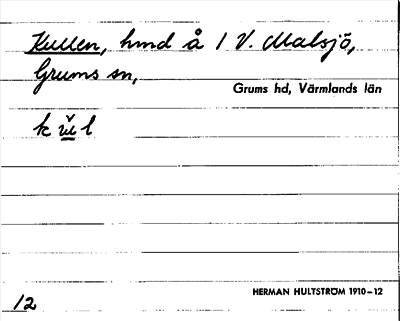 Kullen, hmd å 1 V. Malsjö,
Grums sn,
Grums hd, Värmlands län
k ŭ l
HERMAN HULTSTRÖM 1910–12
12